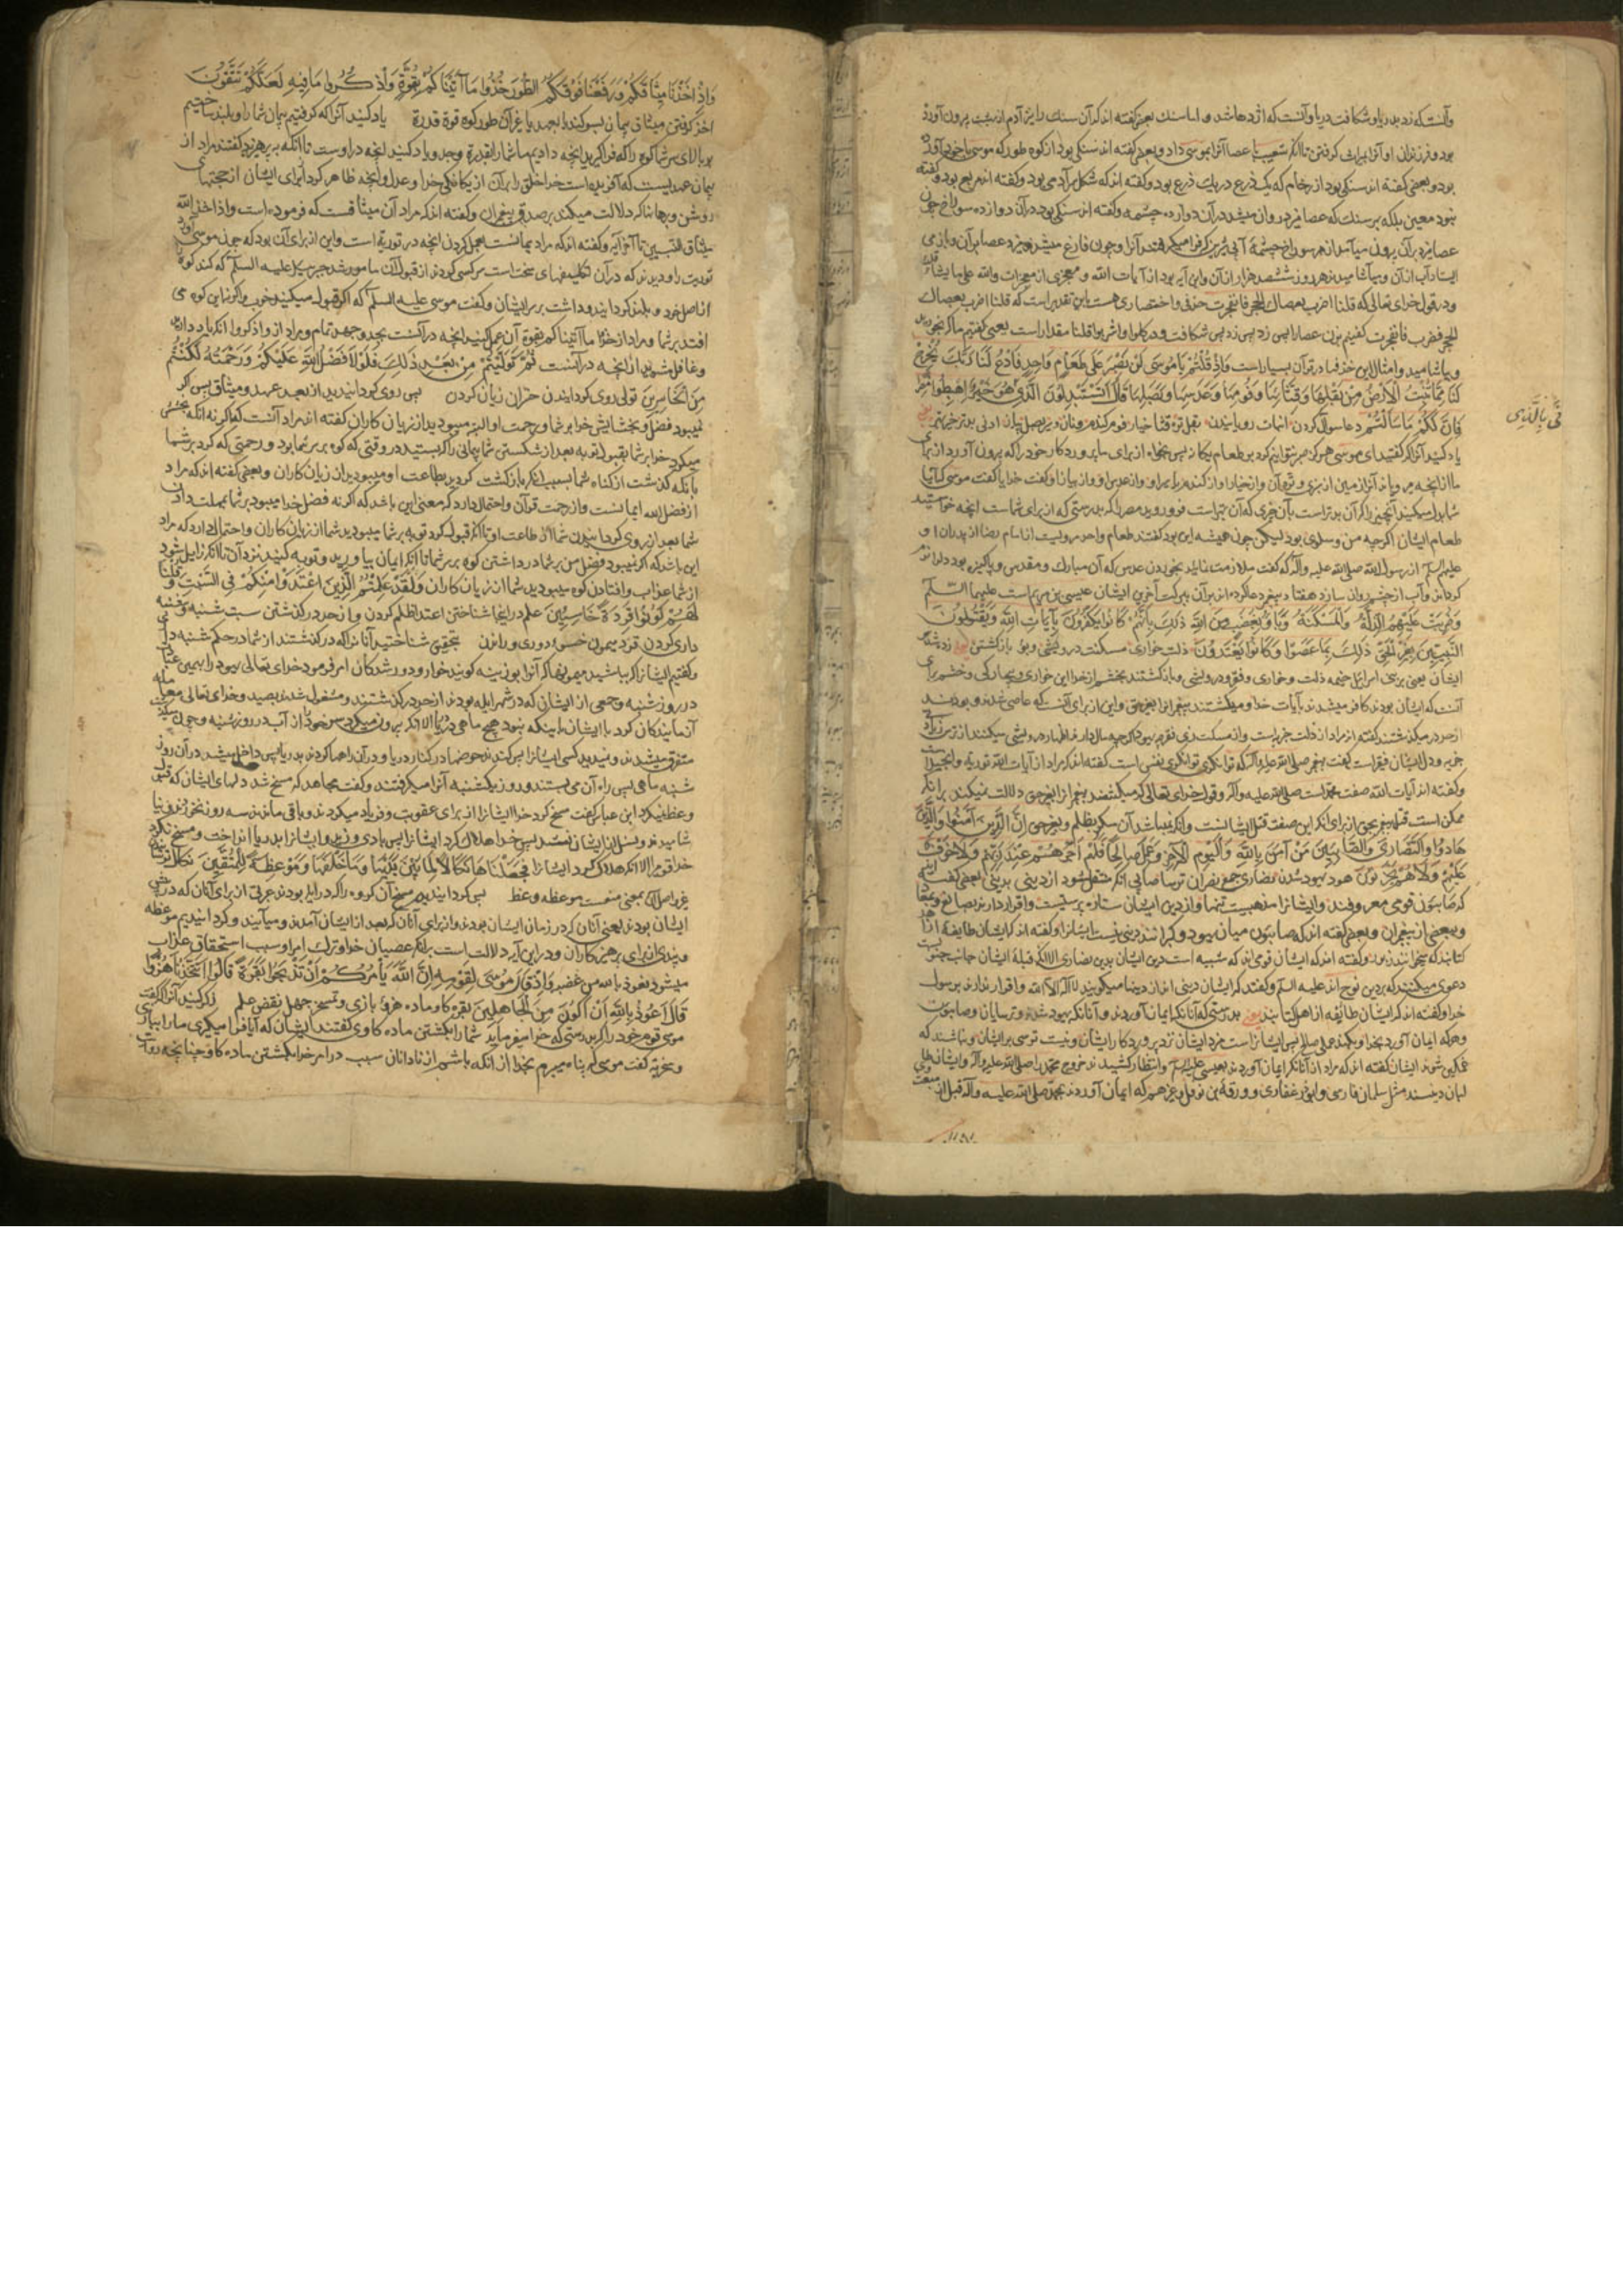 و آنست که زد بدریا و شکافت دریا و آنست که اژدها شد و اما سنک بعضی گفته اند که آن سنک را نیز آدم از بهشت برون آورده
بود و فرزندان او آنرا بمیراث کرفتند تا آنکه شعیب با عصا آنرا بموسی داد و بعضی گفته اند سنکی بود از کوه طور که موسی با خود آورده
بود و بعضی گفته اند سنکی بود از رخام که یک ذرع در یک ذرع بود و گفته اند که شکل سر آدمی بود و گفته اند مربع بود و گفته
نبود معین بلکه بر سنک که عصا میزد روان میشد در آن دوازده چشمه و گفته اند سنکی بود در آن دوازده سوراخ چون
عصا میزد بر آن برون میآمد از هر سوراخ چشمهٔ آبی
ایستاد آب از آن و میآشامیدند هر روز ششصد هزار از آن و این آیه بود از آیات الله و معجزی از معجزات و الله علی ما یشاء قادر
و در قول خدای تعالی که قلنا اضرب بعصاک الحجر فانفجرت حذفی و اختصاری هست باین تقدیر است که قلنا اضرب بعصاک
الحجر فضرب فانفجرت گفتیم بزن عصا را پس زد پس زد پس شکافت و در کلوا و اشربوا قلنا مقدار است یعنی گفتیم ما که بخورید
و بیاشامید و امثال این حذفها در قرآن بسیار است وَاِذْ قُلْتُمْ یَا مُوسَی لَنْ نَصْبِرَ عَلَی طَعَامٍ وَاحِدٍ فَادْعُ لَنَا رَبَّکَ یُخْرِجْ
لَنَا مِمَّا تُنْبِتُ الْاَرْضُ مِنْ بَقْلِهَا وَقِثَّائِهَا وَفُومِهَا وَعَدَسِهَا وَبَصَلِهَا قَالَ اَتَسْتَبْدِلُونَ الَّذِی هُوَ خَیْرٌ اِهْبِطُوا مِصْرًا
فَاِنَّ لَکُمْ مَا سَاَلْتُمْ دعا سؤال کردن انبات رویانیدن بقل تره قثا خیار فوم کندم و نان و سیر بصل پیاز ادنی بدتر خیر بهتر
یاد کنید آنرا که گفتید ای موسی هرکز صبر نتوانیم کرد بر طعام یکانه پس بخواه از برای ما پروردکار خود را که برون آورد از برای
ما از انچه میرویاند آنرا زمین از سبزی و تره آن و از خیار او و از کندم یا سیر او و از عدس او و از پیاز او گفت خدا یا گفت موسی که آیا
شما بدل میکنید آنچیزی را که آن بدتر است بآن چیزی که آن بهتر است فرو روید مصر را که بدرستی که از برای شماست انچه خواستید
طعام ایشان اگرچه من و سلوی بود لیکن چون همیشه این بود گفتند طعام واحد مرویست از امام رضا از پدران او
علیهم السلام از رسول الله صلی الله علیه و آله که گفت ملازمت نمائید بخوردن عدس که آن مبارک و مقدس و پاکیزه بود دلرا نرم
کرداند و آب از چشم روان سازد هفتاد پیغمبر دعا کرده اند بر آن ببرکت آخرین ایشان عیسی بن مریم است علیهما السلام
وَضُرِبَتْ عَلَیْهِمُ الذِّلَّةُ وَالْمَسْکَنَةُ وَبَاؤُ بِغَضَبٍ مِنَ اللهِ ذَلِکَ بِاَنَّهُمْ کَانُوا یَکْفُرُونَ بِآیَاتِ اللهِ وَیَقْتُلُونَ
النَّبِیِّینَ بِغَیْرِ الْحَقِّ ذَلِکَ بِمَا عَصَوْا وَکَانُوا یَعْتَدُونَ ذلت خواری مسکنت درویشی و بوء بازکشتن
ایشان یعنی بر بنی اسرائیل خیمه ذلت و خواری و فقر و درویشی و بازکشتند بخشم از خدا این خواری و بیچارکی و خشم برای
آنست که ایشان بودند کافر میشدند بآیات خدا و میکشتند پیغمبرانرا بغیر حق و این از برای آنست که عاصی شدند و بودند
از حد در میکذشتند گفته اند مراد از ذلت جزیه است و از مسکنت زی فقر
جزیه و دل ایشان فقیر است گفت پیغمبر صلی الله علیه و آله که توانکری توانکری نفس است گفته اند که مراد از آیات الله توریة و انجیل است
و گفته اند آیات الله صفت محمد است صلی الله علیه و آله و قول خدای تعالی که میکشتند پیغمبرانرا بغیر حق دلالت نمیکند بر آنکه
ممکن است قتل پیغمبر بحق از برای آنکه این صفت قتل ایشانست و آنکه نمیباشد آن مگر بظلم و بغیر حق اِنَّ الَّذِینَ آمَنُوا وَالَّذِینَ
هَادُوا وَالنَّصَارَی وَالصَّابِئِینَ مَنْ آمَنَ بِاللهِ وَالْیَوْمِ الْآخِرِ وَعَمِلَ صَالِحًا فَلَهُمْ اَجْرُهُمْ عِنْدَ رَبِّهِمْ وَلَا خَوْفٌ
عَلَیْهِمْ وَلَا هُمْ یَحْزَنُونَ هود یهود شدن نصاری جمع نصران ترسا صابی آنکه منتقل شود از دینی بدینی بعضی گفته اند
که صابئون قومی معروفند و ایشانرا مذهبیست تنها و از دین ایشان ستاره پرستیست و اقرار دارند بصانع و بمعاد
و ببعضی از پیغمبران و بعضی گفته اند که صابئون میان یهود و کبرانند دینی نیست ایشانرا و گفته اند که ایشان طایفه اند از اهل
کتابند که میخوانند زبور و گفته اند که ایشان قومی اند که شبیه است دین ایشان بدین نصاری الا آنکه قبلهٔ ایشان جانب جنوبست
دعوی میکنند که بر دین نوح اند علیه السلام و گفتند که ایشان دینی اند از دینها میکویند لا اله الا الله و اقرار ندارند برسول
خدا و گفته اند که ایشان طایفه از اهل کتابند یعنی بدرستی که آنانکه ایمان آوردند و آنانکه یهود شدند و ترسایان و صابئون
و هرکه ایمان آورد بخدا و بکند عملی صالح پس ایشانراست مزد ایشان نزد پروردکار ایشان و نیست ترسی بر ایشان و نباشند که
غمکین شوند ایشان گفته اند که مراد از آنانکه ایمان آوردند بعیسی علیه السلام و انتظار کشیدند خروج محمد را صلی الله علیه و آله و ایشان طالبان
دینند مثل سلمان فارسی و ابوذر غفاری و ورقة بن نوفل و غیرهم که ایمان آوردند بمحمد صلی الله علیه و آله قبل از مبعث
نَی بِالَّذِی
وَاِذْ اَخَذْنَا مِیثَاقَکُمْ وَرَفَعْنَا فَوْقَکُمُ الطُّورَ خُذُوا مَا آتَیْنَاکُمْ بِقُوَّةٍ وَاذْکُرُوا مَا فِیهِ لَعَلَّکُمْ تَتَّقُونَ
اخذ کرفتن میثاق پیمان بسوکند یا بعهد یا غیر آن طور کوه قوة قدرة یاد کنید آنرا که کرفتیم پیمان شما را و بلند ساختیم
بر بالای سر شما کوه را که فراگیرید انچه دادیم ما شما را بقدرة و جد و یاد کنید انچه در اوست تا آنکه بپرهیزید گفتند مراد از
پیمان عهدیست که آفریده است خدا خلق را بر آن از یکانکی خدا و عدل و انچه ظاهر کرد از برای ایشان از حجتهای
روشن و برهانها که دلالت میکند بر صدق پیغمبران و گفته اند که مراد آن میثاقست که فرموده است و اذ اخذ الله
میثاق النبیین تا آخر آیه و گفته اند که مراد پیمانست بعمل کردن انچه در توریة است و این از برای آن بود که چون موسی آورد
توریت را و دیدند که در آن تکلیفهای سخت است سرکشی کردند از قبول آن مامور شد جبرئیل علیه السلام که کند کوه
از اصل خود و بلند کردانید و داشت بر سر ایشان و گفت موسی علیه السلام که اکر قبول میکنید خوب و اکر نه این کوه می
افتد بر شما و مراد از خذوا ما آتیناکم بقوة آن عمل کنید انچه در آنست بجد و جهد تمام و مراد از و اذکروا آنکه یاد دارید
و غافل مشوید از انچه در آنست ثُمَّ تَوَلَّیْتُمْ مِنْ بَعْدِ ذَلِکَ فَلَوْلَا فَضْلُ اللهِ عَلَیْکُمْ وَرَحْمَتُهُ لَکُنْتُمْ
مِنَ الْخَاسِرِینَ تولی روی کردانیدن خسران زیان کردن پس روی کردانیدید از بعد عهد و میثاق پس اکر
نمیبود فضل و بخشایش خدا بر شما و رحمت او البته میبودید از زیان کاران گفته اند مراد آنست که اکر نه آنکه بخشش
میکرد خدا بر شما بقبول توبه بعد از شکستن شما پیمانی را که بستید در وقتی که کوه بر سر شما بود و رحمتی که کرد بر شما
بآنکه کذشت از کناه شما بسبب آنکه بازکشت کردید بطاعت او میبودید از زیان کاران و بعضی گفته اند که مراد
از فضل الله ایمانست و از رحمت قرآن و احتمال دارد که معنی این باشد که اکر نه فضل خدا میبود بر شما بمهلت دادن
شما بعد از روی کردانیدن شما از طاعت او تا آنکه قبول کرد توبه بر شما میبودید شما از زیان کاران و احتمال دارد که مراد
این باشد که اکر نمیبود فضل من بر شما در داشتن کوه بر سر شما تا آنکه ایمان بیاورید و توبه کنید نزد آن تا آنکه زایل شود
از شما عذاب و افتادن کوه میبودید شما از زیان کاران وَلَقَدْ عَلِمْتُمُ الَّذِینَ اعْتَدَوْا مِنْکُمْ فِی السَّبْتِ فَقُلْنَا
لَهُمْ کُونُوا قِرَدَةً خَاسِئِینَ علم در اینجا شناختن اعتدا ظلم کردن و از حد در کذشتن سبت شنبه و شنبه
داری کردن قرد میمون خسوء دوری و راندن بتحقیق شناختید آنانرا که در کذشتند از شما در حکم شنبه
و گفتیم ایشانرا که باشید میمونها که آنرا بوزینه کویند خوار و دور شدکان امر فرمود خدای تعالی یهود را
در روز شنبه و جمعی از ایشان که در شهر ایله بودند از حد در کذشتند و مشغول شدند بصید و خدای تعالی معامله
آزمایندکان کرد با ایشان باینکه نبود هیچ ماهی در دریا الا آنکه بیرون میکرد سر خود از آب در روز شنبه و چون میکذشت
متفرق میشدند و نمیدید کسی ایشانرا پس کندند حوضها در کنار دریا و در آن راهها کردند بدریا پس داخل میشد در آن روز
شنبه ماهی پس راه آن می بستند و روز یکشنبه آنرا میکرفتند و گفت مجاهد که مسخ شد دلهای ایشان که قبول
وعظ نمیکرد ابن عباس گفت مسخ کرد خدا ایشانرا از برای عقوبت و فریاد میکردند و باقی ماندند سه روز نخوردند و نیا
شامیدند و نسل از ایشان نشد پس خدا هلاک کرد ایشانرا پس بادی وزید و ایشانرا بدریا انداخت و مسخ نکرد
خدا قومی را الا آنکه هلاک کرد ایشانرا فَجَعَلْنَاهَا نَکَالًا لِمَا بَیْنَ یَدَیْهَا وَمَا خَلْفَهَا وَمَوْعِظَةً لِلْمُتَّقِینَ نکال
موعظه وعظ پس کردانیدیم مسخ آن کروه را که در ایله بودند عبرتی از برای آنان که در پیش
ایشان بودند یعنی آنان که در زمان ایشان بودند و از برای آنان که بعد از ایشان آمدند و میآیند و کردانیدیم موعظه
و پندی از برای پرهیزکاران و در این آیه دلالت است بر آنکه عصیان خدا و ترک امر او سبب استحقاق عذاب
میشود نعوذ بالله من غضبه وَاِذْ قَالَ مُوسَی لِقَوْمِهِ اِنَّ اللهَ یَأْمُرُکُمْ اَنْ تَذْبَحُوا بَقَرَةً قَالُوا اَتَتَّخِذُنَا هُزُوًا
قَالَ اَعُوذُ بِاللهِ اَنْ اَکُونَ مِنَ الْجَاهِلِینَ بقره کاو ماده هزؤ بازی و تمسخر جهل نقیض علم ذکر کنید آنرا که گفت
موسی قوم خود را که بدرستی که خدا میفرماید شما را بکشتن ماده کاوی گفتند ایشان که آیا فرا میکیری ما را ببازی
و سخریة گفت موسی که پناه میبرم بخدا از آنکه باشم از نادانان سبب در امر خدا بکشتن ماده کاو چنانچه روایت